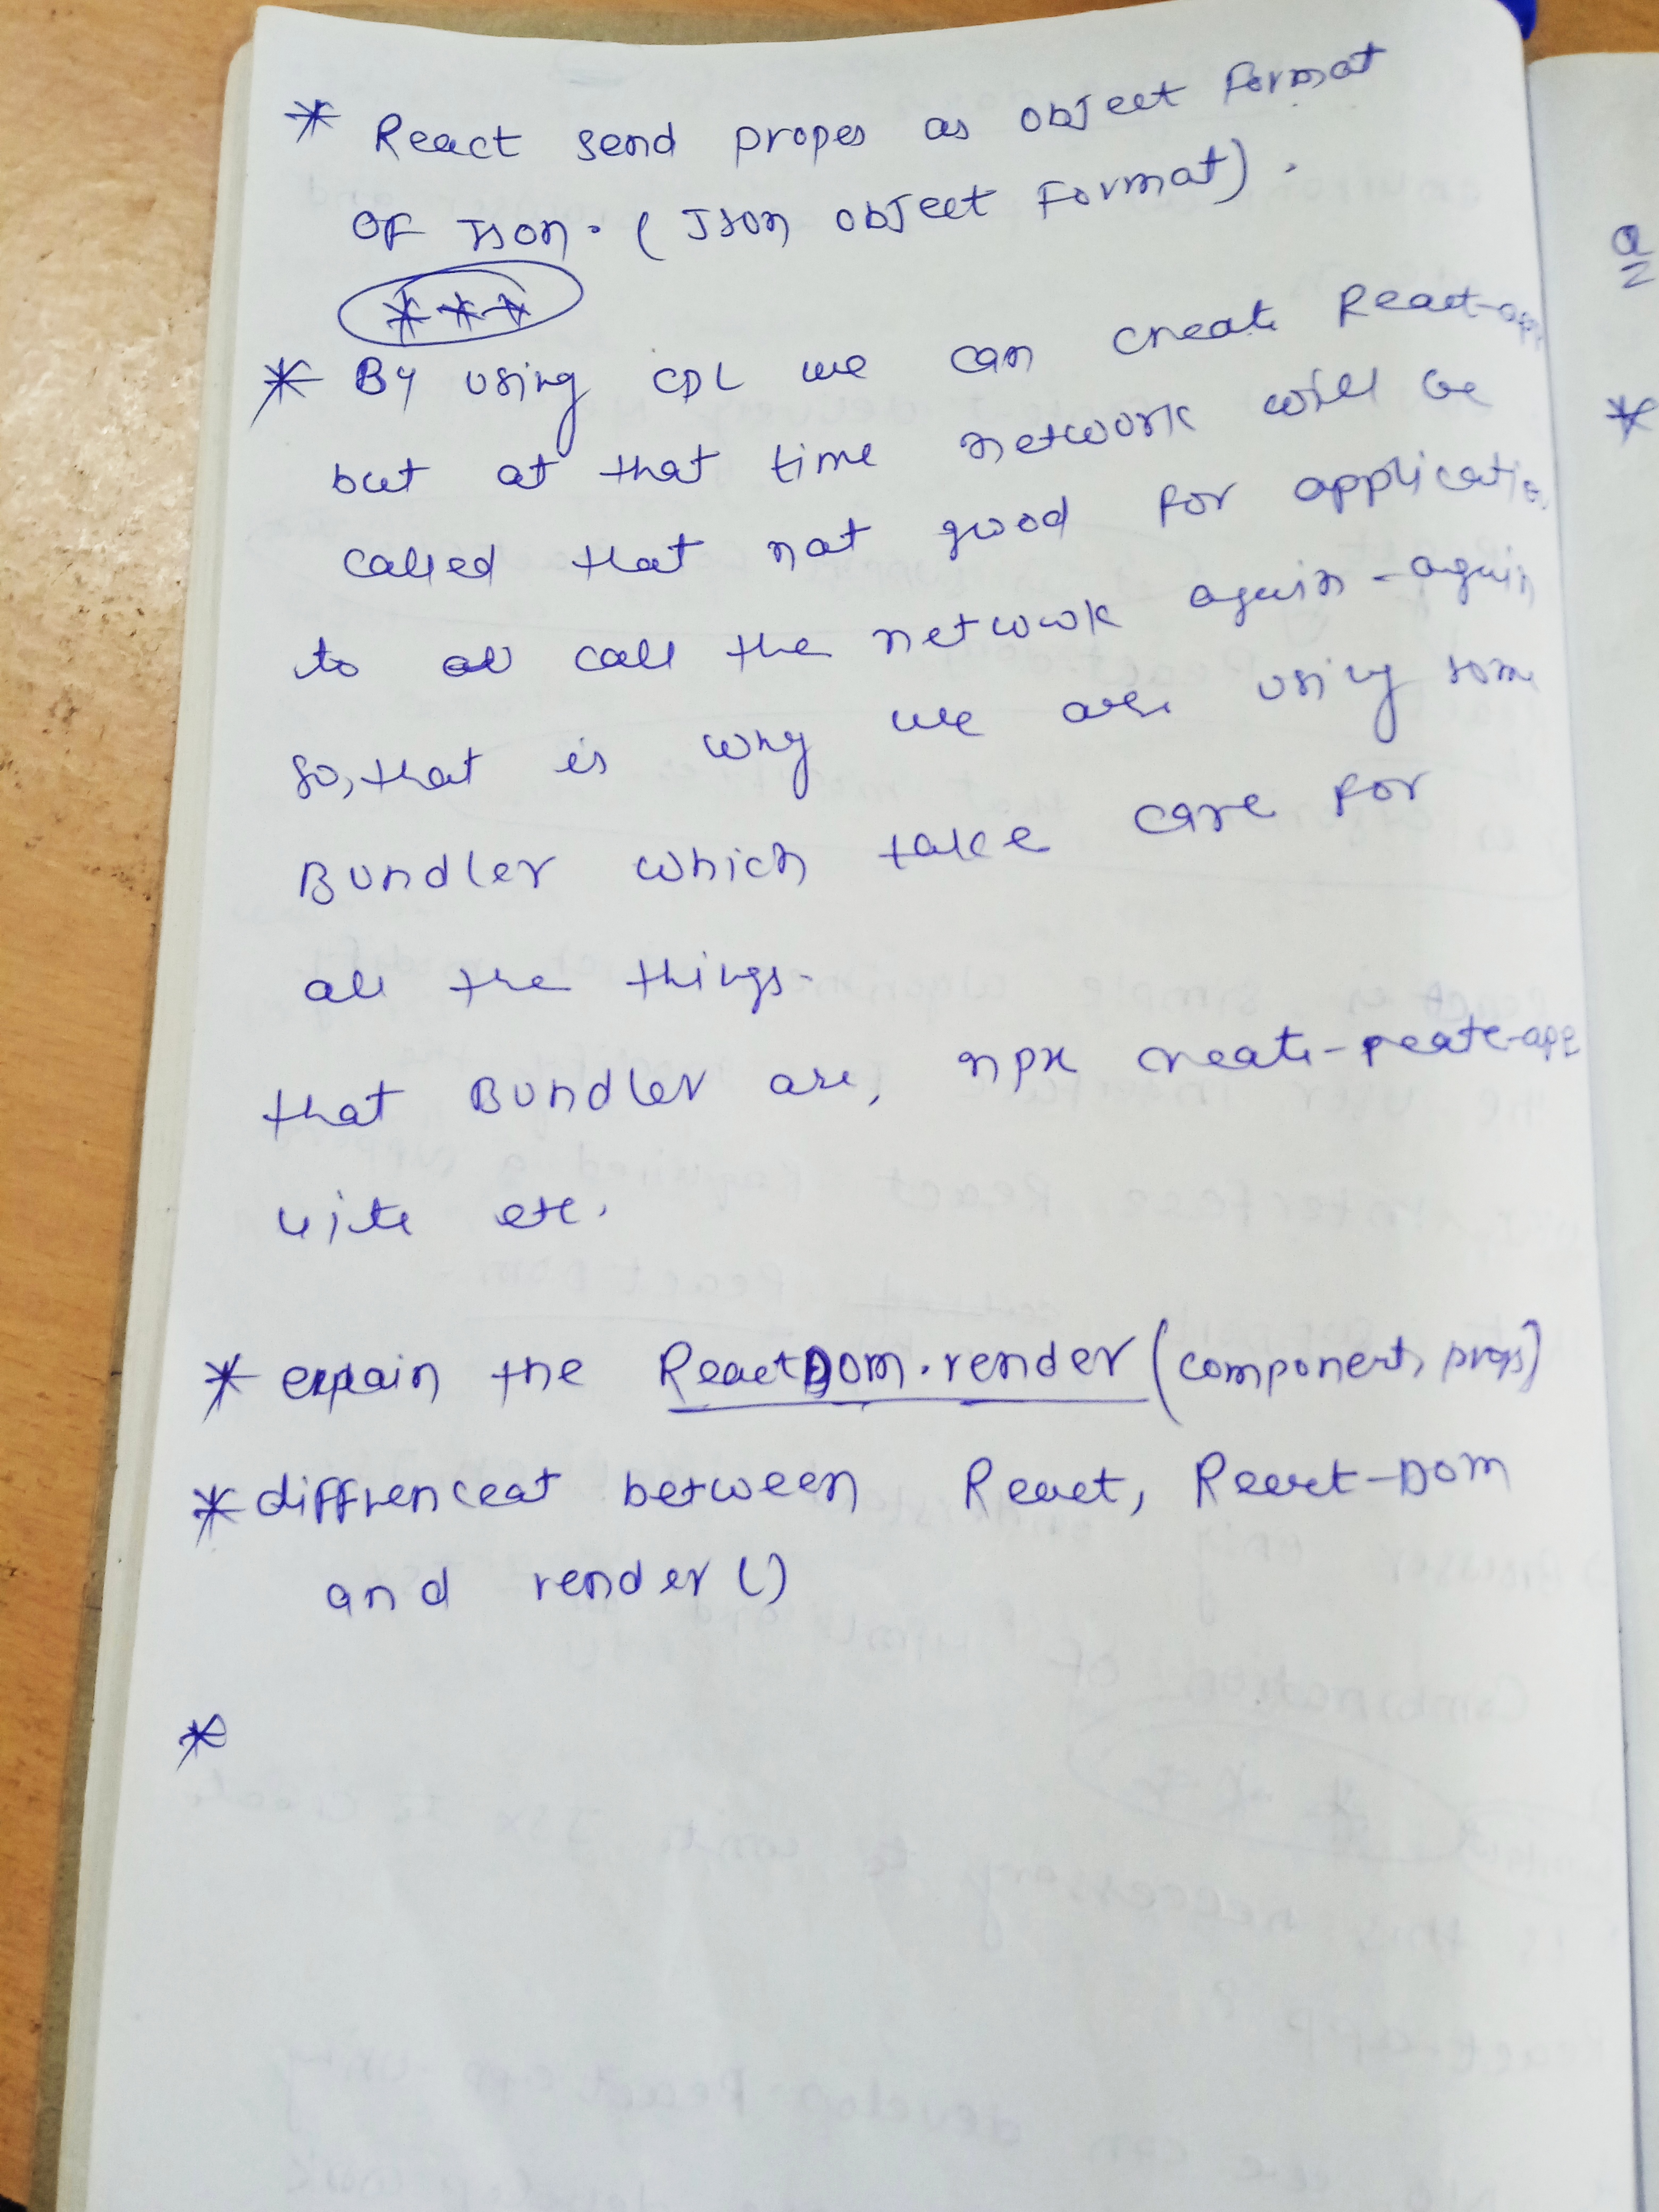 * React send propes as object Format
OF Json. (Json object Format).
***
* By using CDL we can create React-app
but at that time network will be
called that not good for applicatio
to call the network again-again
so, that is why we are using som
Bundler which take care for
all the things.
that Bundler are, npx create-reate-app
vite etc.
* explain the ReactDom.render(component, props)
* diffrenceat between React, React-Dom
and render()
*
Q
*